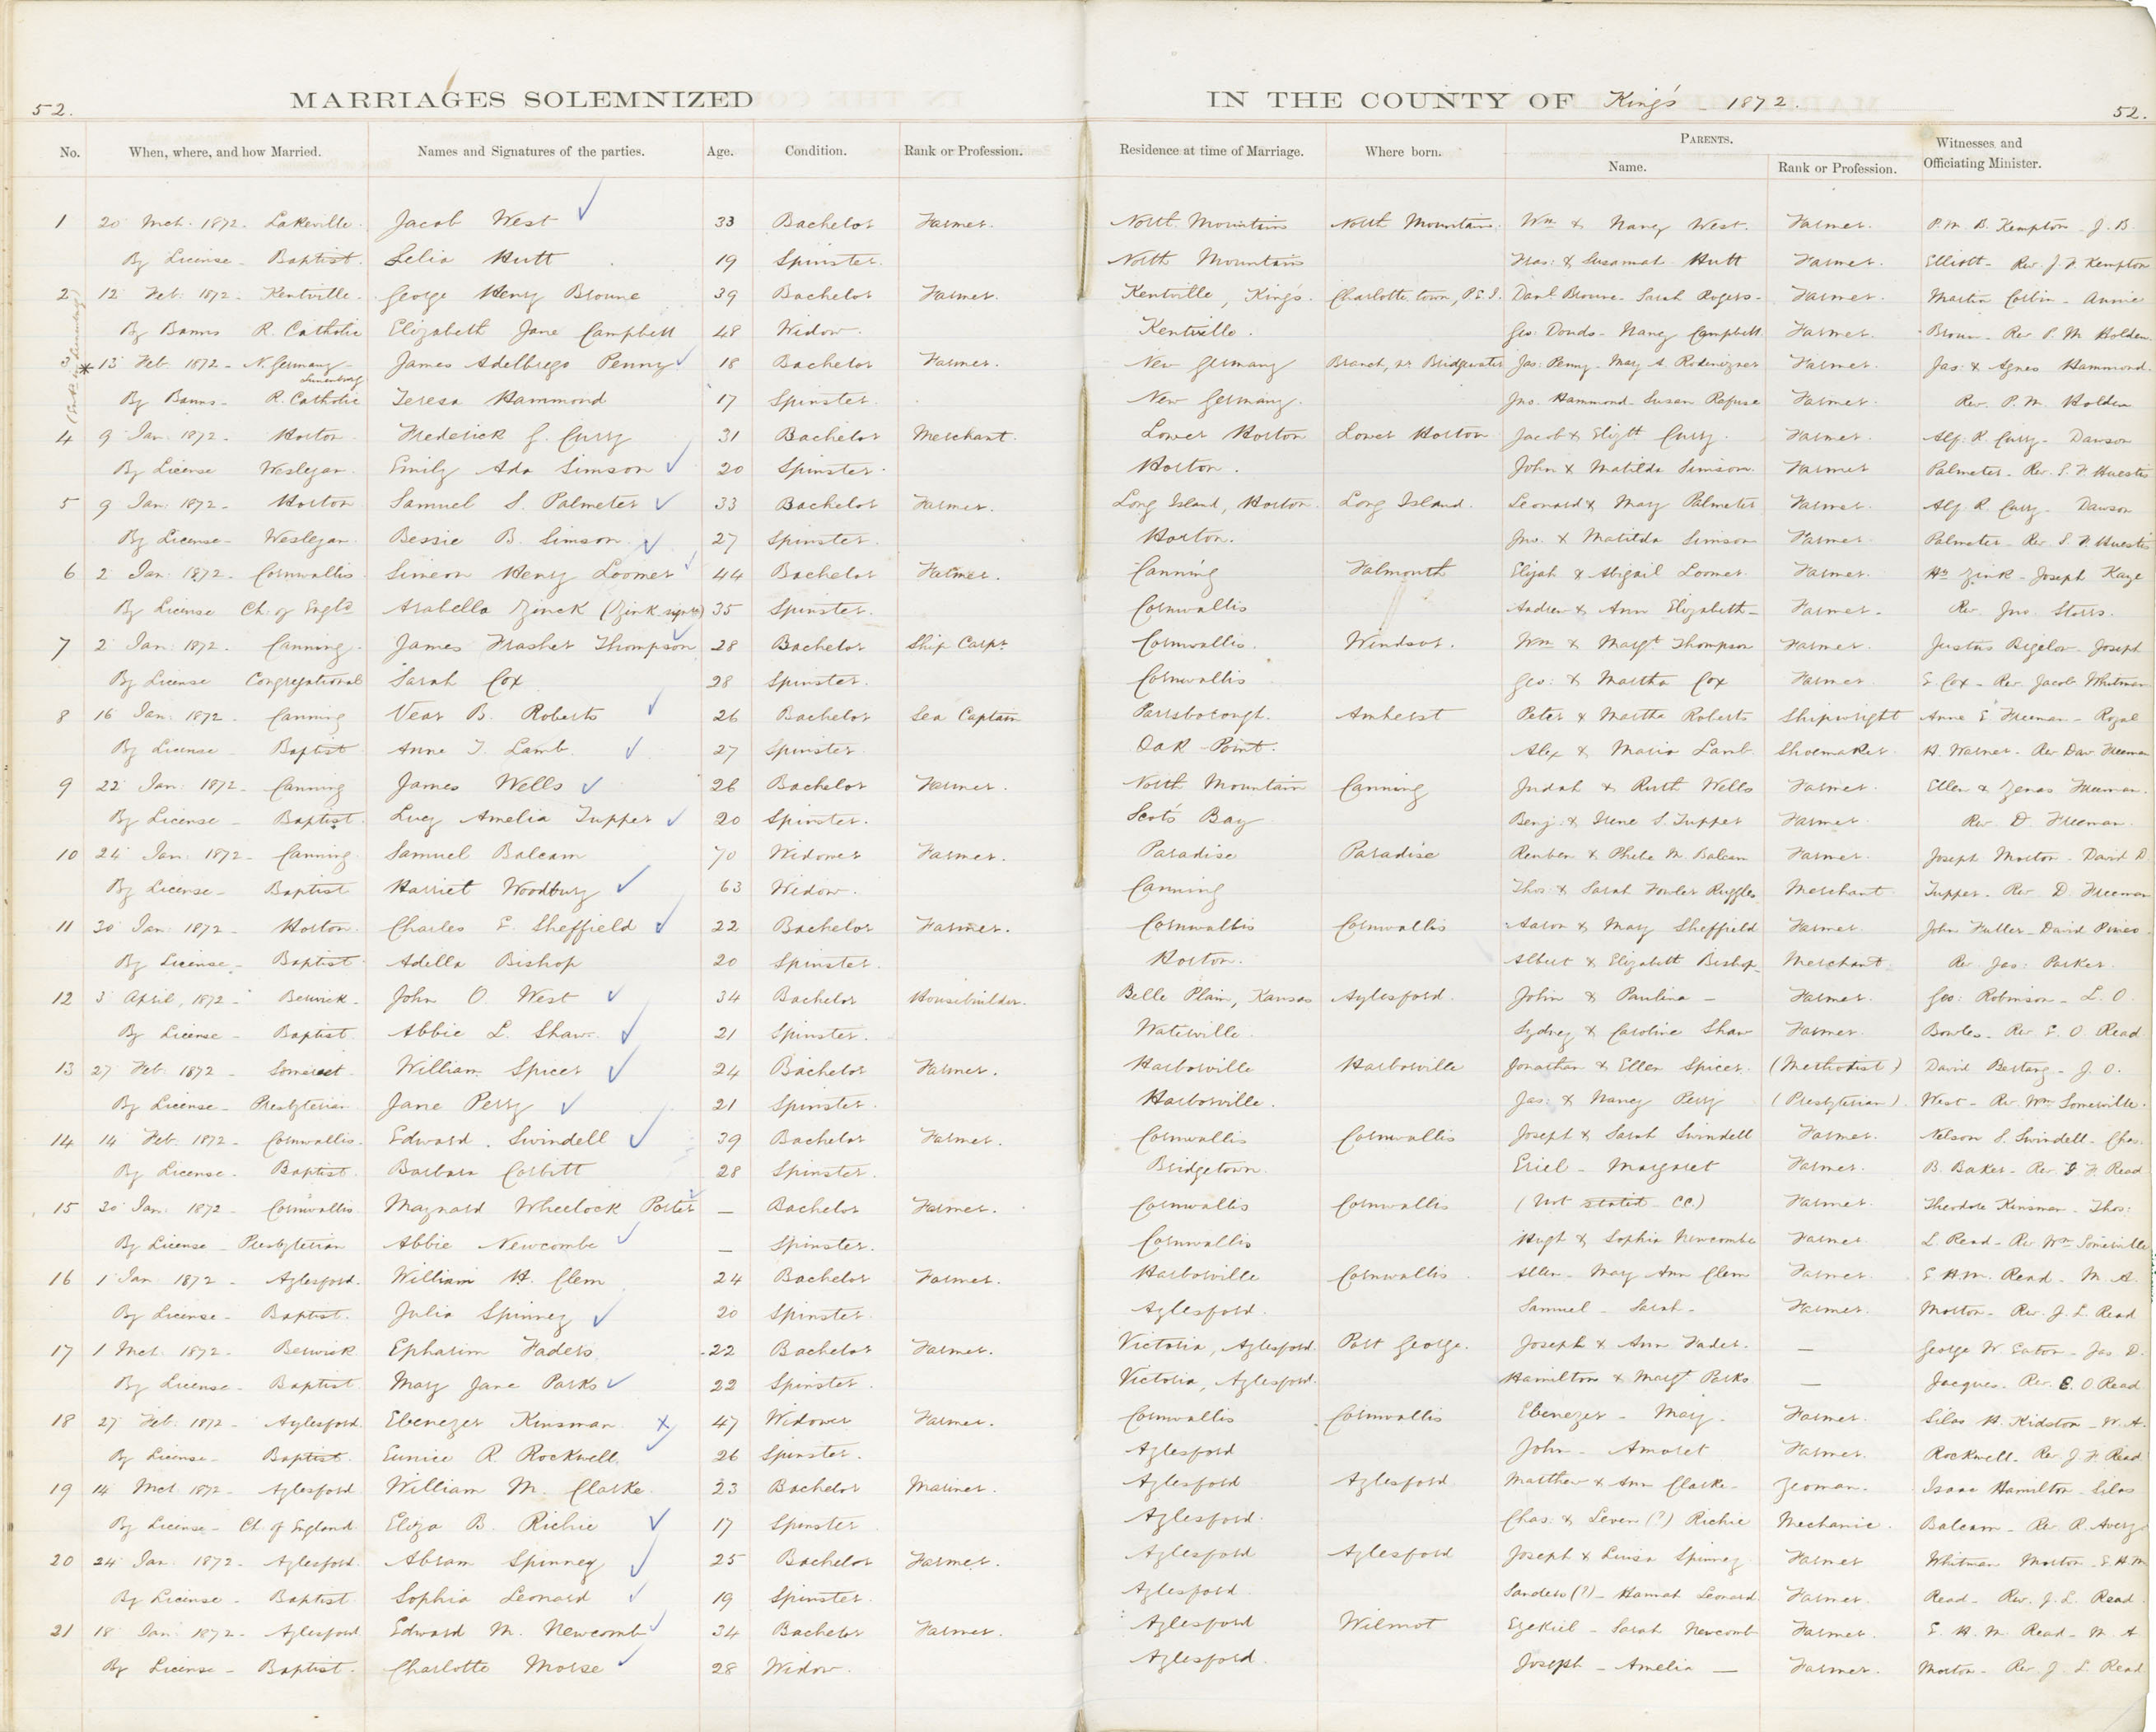 52.
MARRIAGES SOLEMNIZED IN THE COUNTY OF King's - 1872.
52.
No. When, where, and how Married. Names and Signatures of the parties. Age. Condition. Rank or Profession. Residence at time of Marriage. Where born. PARENTS. Name. Rank or Profession. Witnesses and Officiating Minister.
1 20 Mch. 1872. Lakeville. Jacob West 33 Bachelor Farmer. North Mountain North Mountain. Wm & Nancy West. Farmer. P. M. B. Kempton. J. B.
By License - Baptist. Lelia Hutt 19 Spinster. North Mountain Susannah Hutt Farmer. Elliott - Rev. J. F. Kempton
2 12 Feb. 1872 - Kentville. George Henry Browne 39 Bachelor Farmer. Kentville, King's. Charlotte town, P.E.I. Danl. Browne - Sarah Rogers - Farmer. Martin Corbin - Annie
By Banns R. Catholic Elizabeth Jane Campbell 48 Widow. Kentville. Geo: Donds - Nancy Campbell Farmer. Brown - Rev. P. M. Holden.
3 * 13 Feb. 1872 - N. Germany - Lunenburg James Adelbrego Penny 18 Bachelor Farmer. New Germany Branch, nr Bridgwater Jas: Penny - Mary A. Rodenizner Farmer. Jas: & Agnes Hammond.
By Banns - R. Catholic Teresa Hammond 17 Spinster. New Germany. Jno. Hammond - Susan Rafuse Farmer. Rev. P. M. Holden
4 9 Jan. 1872 - Horton. Frederick G. Curry 31 Bachelor Merchant. Lower Horton Lower Horton Jacob & Elizth Curry. Farmer. Alf. R. Curry - Dawson
By License Wesleyan. Emily Ada Simson 20 Spinster. Horton. John & Matilda Simson. Farmer Palmeter - Rev. S. F. Huestis
5 9 Jan: 1872 - Horton Samuel S. Palmeter 33 Bachelor Farmer. Long Island, Horton. Long Island. Leonard & Mary Palmeter Farmer. Alf. R. Curry - Dawson
By License - Wesleyan. Bessie B. Simson. 27 Spinster. Horton. Jno. & Matilda Simson Farmer. Palmeter - Rev. S. F. Huestis
6 2 Jan: 1872. Cornwallis. Simeon Henry Loomer 44 Bachelor Farmer. Canning Falmouth Elijah & Abigail Loomer. Farmer. Hy Zink - Joseph Kaye
By License Ch. of Engld. Arabella Zinck (Zink signed) 35 Spinster. Cornwallis Andrew & Ann Elizabeth - Farmer. Rev. Jno. Storrs.
7 2 Jan: 1872. Canning. James Frasher Thompson 28 Bachelor Ship Carpr. Cornwallis. Windsor. Wm & Margt Thompson Farmer. Justus Bigelow - Joseph
By License Congregational Sarah Cox 28 Spinster. Cornwallis Geo: & Martha Cox Farmer. E. Cox - Rev. Jacob Whitman
8 16 Jan: 1872. Canning Vear B. Roberts 26 Bachelor Sea Captain Parrsborough. Amherst Peter & Martha Roberts Shipwright Anne E. Freeman - Royal
By License - Baptist. Anne T. Lamb. 27 Spinster. Oak Point. Alex & Maria Lamb. Shoemaker. H. Warner - Rev. Dav. Freeman
9 22 Jan: 1872 - Canning James Wells 26 Bachelor Farmer. North Mountain Canning Judah & Ruth Wells Farmer. Ellen & Zenas Freeman.
By License - Baptist. Lucy Amelia Tupper 20 Spinster. Scot's Bay Benj: & Irene S. Tupper Farmer. Rev. D. Freeman.
10 24 Jan: 1872 - Canning. Samuel Balcam 70 Widower Farmer. Paradise Paradise Reuben & Phebe M. Balcam Farmer. Joseph Morton - David D.
By License - Baptist Harriet Woodbury 63 Widow. Canning Thos: & Sarah Fowler Ruggles Merchant Tupper - Rev. D. Freeman
11 30 Jan: 1872 - Horton. Charles E. Sheffield 22 Bachelor Farmer. Cornwallis Cornwallis Aaron & Mary Sheffield Farmer. John Fuller - David Pineo.
By License - Baptist Adella Bishop 20 Spinster. Horton. Albert & Elizabeth Bishop. Merchant Rev. Jas: Parker.
12 3 April, 1872 - Berwick. John O. West 34 Bachelor Housebuilder. Belle Plain, Kansas Aylesford. John & Paulina - Farmer. Geo: Robinson - L. O.
By License - Baptist. Abbie L. Shaw. 21 Spinster. Waterville. Sydney & Caroline Shaw Farmer. Bowles - Rev. E. O. Read.
13 27 Feb. 1872 - Somerset. William Spicer 24 Bachelor Farmer. Harborville Harborville Jonathan & Ellen Spicer. (Methodist) David Bertang - J. O.
By License - Presbyterian Jane Perry 21 Spinster. Harborville. Jas: & Nancy Perry (Presbyterian). West - Rev. Wm Somerville.
14 14 Feb. 1872 - Cornwallis. Edward. Swindell 39 Bachelor Farmer. Cornwallis Cornwallis Joseph & Sarah Swindell Farmer. Nelson S. Swindell - Chas.
By License - Baptist. Barbara Corbitt 28 Spinster. Bridgetown. Eriel - Margaret Farmer. B. Baker - Rev. J. F. Read
15 30 Jan: 1872 - Cornwallis Maynard Wheelock Porter - Bachelor Farmer. Cornwallis Cornwallis (Not stated CC.) Farmer. Theodore Kinsman - Thos:
By License - Presbyterian Abbie Newcombe - Spinster. Cornwallis Hugh & Sophia Newcombe Farmer. L. Read - Rev. Wm Somerville
16 1 Jan 1872 - Aylesford. William H. Clem 24 Bachelor Farmer. Harborville Cornwallis Allen - Mary Ann Clem Farmer. E. H. M. Read - M. A.
By License - Baptist. Julia Spinney 20 Spinster. Aylesford. Samuel - Sarah - Farmer. Morton - Rev. J. L. Read
17 1 Mch. 1872 - Berwick Epharim Faders 22 Bachelor Farmer. Victoria, Aylesford. Port George. Joseph & Ann Fader. - George W. Eaton - Jas. D.
By License - Baptist Mary Jane Parks 22 Spinster. Victoria, Aylesford. Hamilton & Margt Parks - Jacques. Rev. E. O Read
18 27 Feb: 1872 - Aylesford. Ebenezer Kinsman 47 Widower Farmer. Cornwallis Cornwallis Ebenezer - Mary. Farmer. Silas H. Kidston - W. A.
By License - Baptist. Eunice R. Rockwell. 26 Spinster. Aylesford John - Amoret Farmer. Rockwell. Rev. J. F. Read
19 14 Mch 1872 - Aylesford William M. Clarke. 23 Bachelor Mariner. Aylesford Aylesford Matthew & Ann Clarke - Yeoman. Isaac Hamilton - Silas
By License - Ch. of England. Eliza B. Richie 17 Spinster Aylesford. Chas: & Seven (?) Richie Mechanic. Balcam - Rev. R. Avery
20 24 Jan: 1872 - Aylesford. Abram Spinney 25 Bachelor Farmer. Aylesford Aylesford Joseph & Luisa Spinney Farmer Whitman Morton - E. H. M
By License - Baptist. Sophia Leonard 19 Spinster. Aylesford. Sanders (?) - Hannah Leonard Farmer. Read - Rev. J. L. Read.
21 18 Jan: 1872 - Aylesford Edward M. Newcomb 34 Bachelor Farmer. Aylesford Wilmot Ezekiel - Sarah Newcomb Farmer. E. H. M. Read - M. A
By License - Baptist. Charlotte Morse 28 Widow. Aylesford. Joseph - Amelia - Farmer. Morton - Rev. J. L. Read